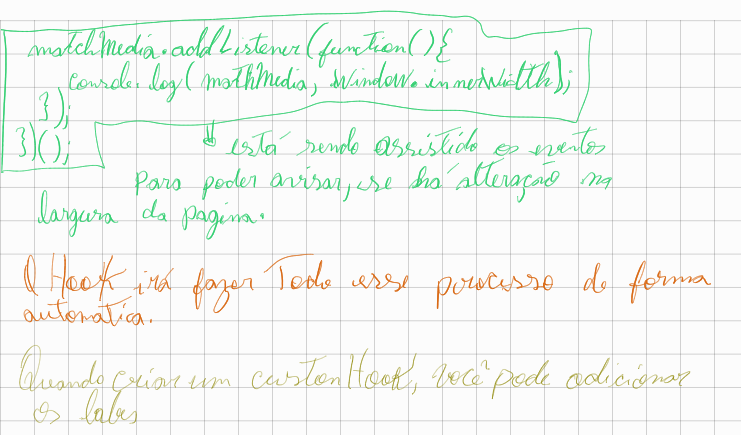 matchMedia.addListener(function(){
console.log(mathMedia, window.innerWidth);
});
})();
está sendo assistido os eventos
para poder avisar, se há alteração na
largura da página.
O Hook irá fazer Todo esse processo de forma
automática.
Quando criar um custon Hook, você pode adicionar
os labes